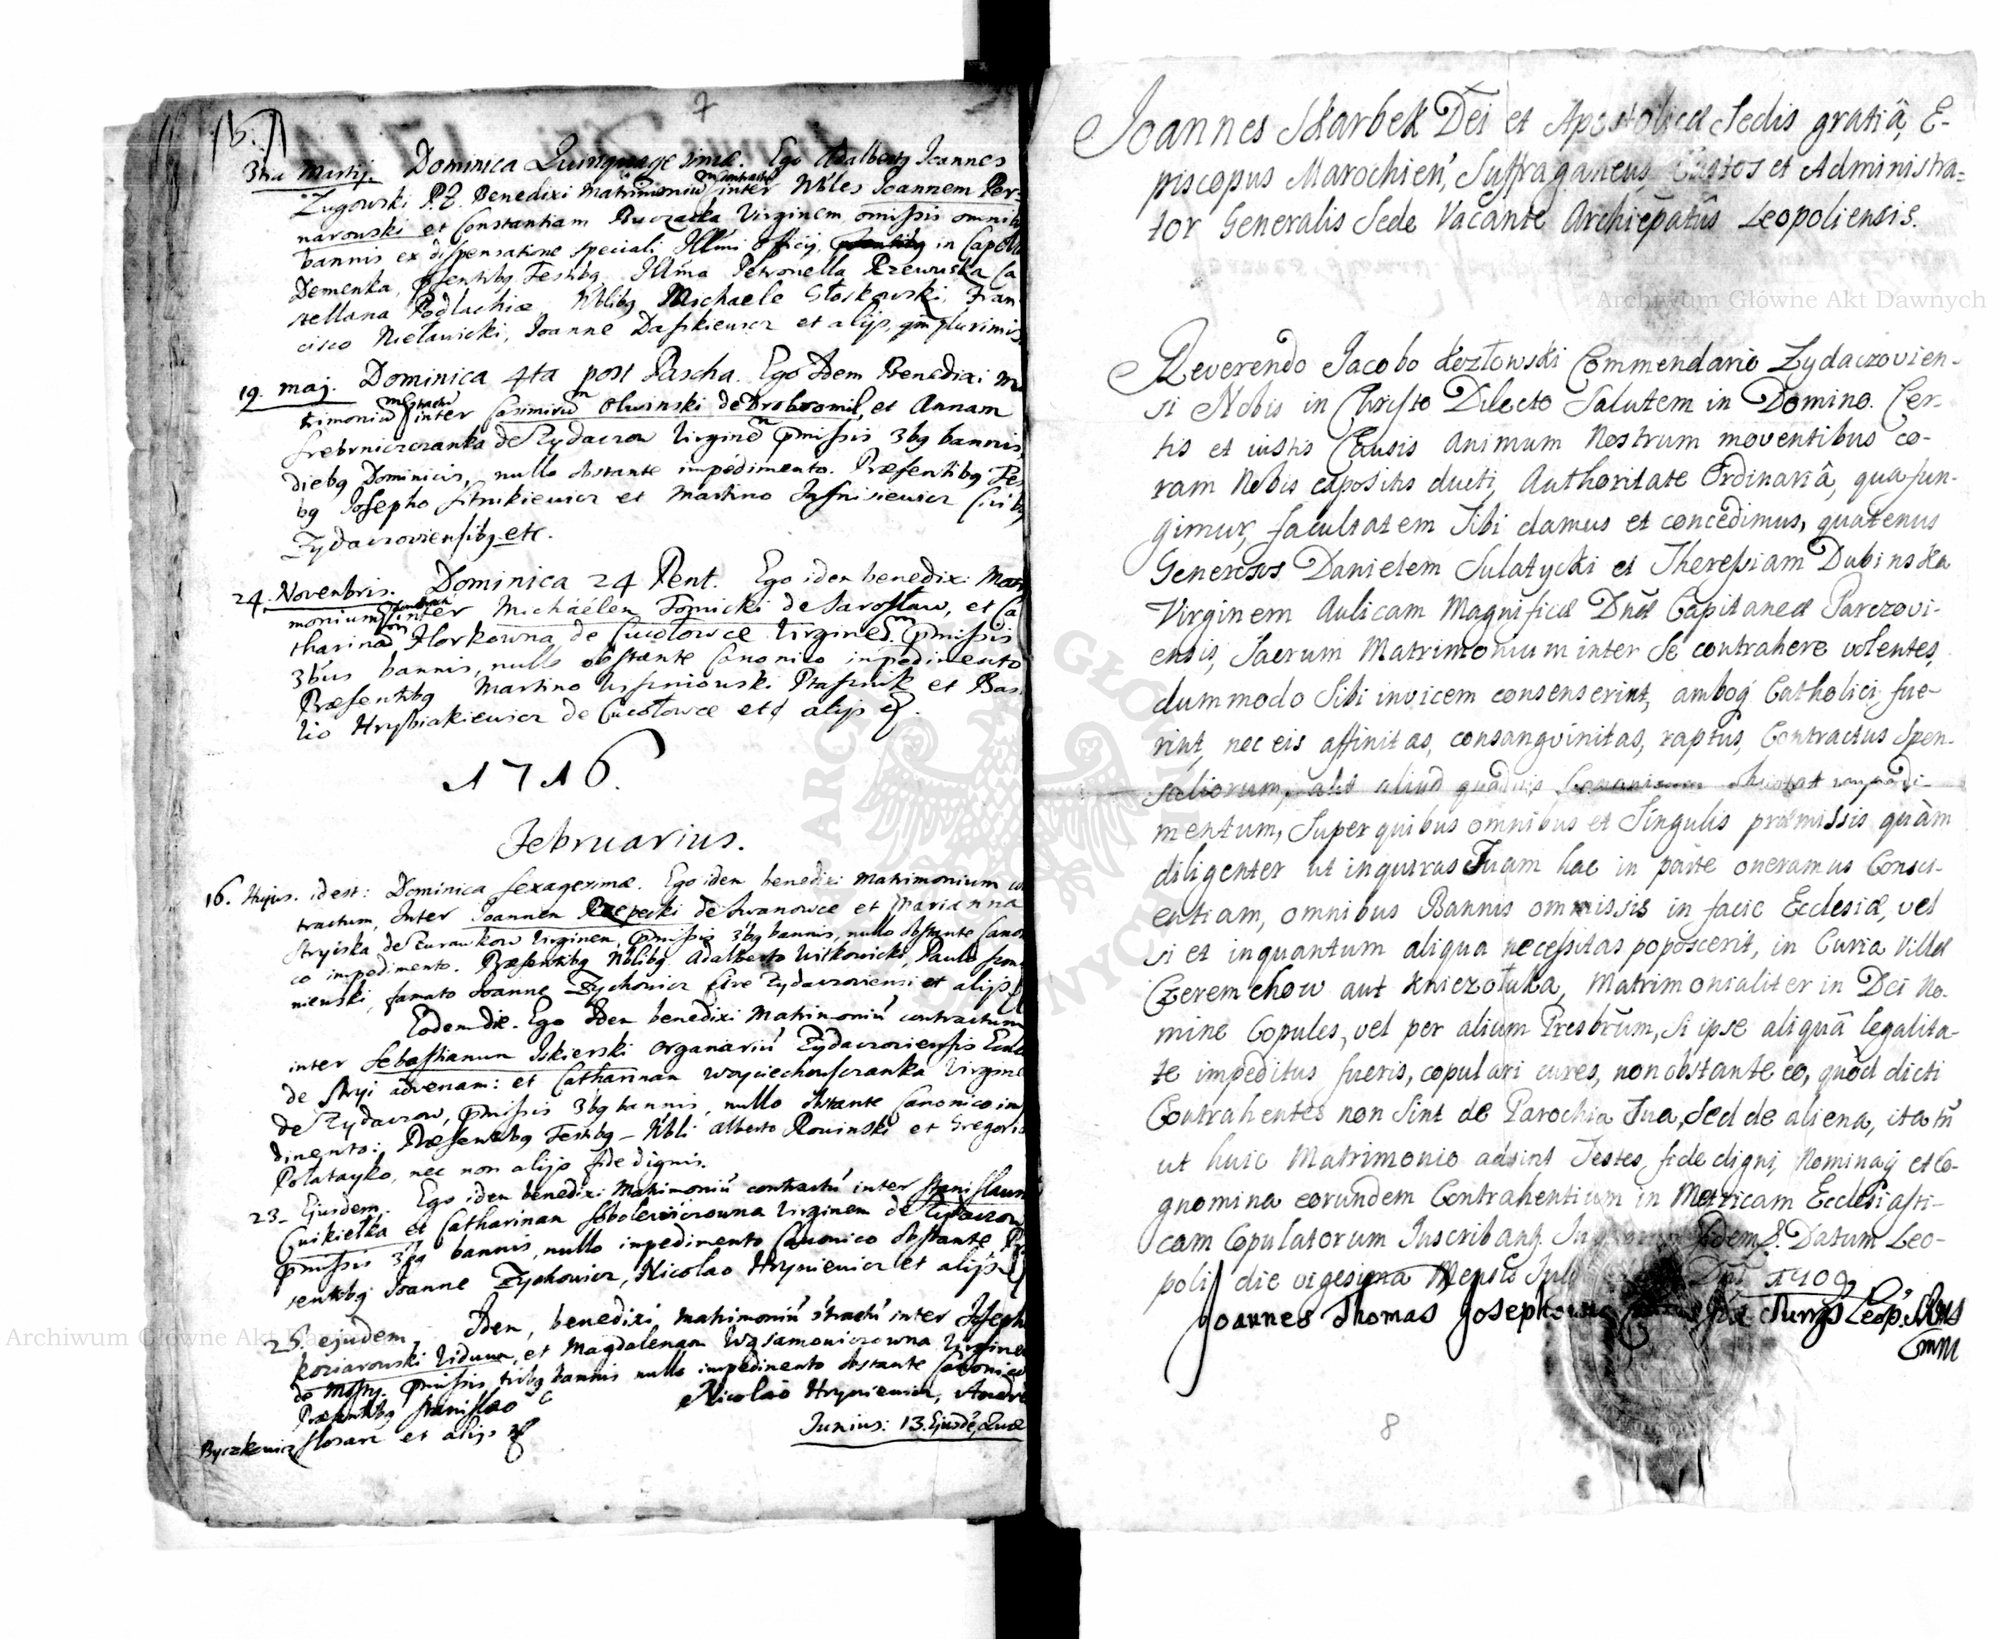 7
3tia Martij. Dominica Quinquagesimæ. Ego Adalbertq Joannes
Zugowski P. Z. Benedixi Matrimoniū contractū inter Nbles Joannem Per-
narowski et Constantiam Ruczacka Virginem omissis omnibq
bannis ex dispensatione speciali Illmi Officij, in Capella
Demenka, pręsentibq Testibq, Illma Petronella Rzewuska Ca
stellana Podlachiæ Nblibq Michaele Głoskowski, Fran
cisco Nietawicki, Joanne Daszkiewicz et alijs qm plurimis
19. maij. Dominica 4ta post Pascha. Ego Idem Benedixi Ma
trimoniū contractū inter Casimirum Olwinski de Drohromil, et Annam
Srebrniczczanka de Zydaczow Virginē pmissis 3bq bannis
diebq Dominicis, nullo obstante impedimento. Præsentibq Tes
bq Josepho Sitnikiewicz et Martino Jasnisiewicz Civibq
Zydaczoviensibq etc.
24. Novenbris. Dominica 24 Pent. Ego iden benedixi Matri
monium contractum inter Michäélem Topnicki de Jaroslaw, et Ca
tharinā Horkowna de Cucołowce Virginem pmissis
3bus bannis, nullo obstante Canonico inpedimento
Præsentibq Martino Ptasznik et Basi
lio Hrysiakiewicz de Cucołowce et alijs
1716.
Februarius.
16. Hujus. idest: Dominica sexagesimæ. Ego iden benedixi Matrimonium con
tractum, Inter Joannen Rzepecki de Iwanowce et Marianna
Stryiska de Zurawkow Virginen, pmissis 3bq bannis, nullo obstante Canon
co impedimento. Præsentibq Nblibq Adalberto Witkowicki, Paulo
niewski, famato Joanne Zychowicz Cive Zydaczoviensi et alijs
Eodem die. Ego Iden benedixi Matrimoniū contractum
inter Sebastianum Iskierski organariū Zydaczoviensis Eccle
de Stryi advenam: et Catharinan Woyciechowszczanka Virgine
de Zydaczow, pmissis 3bq bannis, nullo obstante Canonico im
dimento: Præsentibq Testibq - Nbli Alberto Rowinski et Gregorio
Polatayko, nec non alijs fide dignis.
23. Ejusdem. Ego iden benedixi Matrimoniū contractū inter Stanislaum
Cwikielka et Catharinan Sobolewiczowna Virginem de Zydaczow
pmissis 3bq bannis, nullo inpedimento Canonico obstante Præ
sentibq Joanne Zychowicz, Nicolao Hryniewicz et alijs
25. ejudem. Iden, benedixi, matrimoniū ctractū inter Joseph
Koziarowski Viduum, et Magdalenam Virginem
de Mosty. pmissis tribq bannis nullo impedimento obstante Canonico
Præsentibq Stanislao Nicolao Hryniewicz, Andre
Byczkowicz et alijs
Junius: 13. Ejusdē, Quæ
Joannes Skarbek Dei et Apostolicæ Sedis gratiâ, E-
piscopus Marochien, Suffraganeus, Custos et Administra=
tor Generalis Sede Vacante Archiepatûs Leopoliensis.
Reverendo Jacobo Kozłowski Commendario Zydaczovien-
si Nobis in Christo Dilecto Salutem in Domino. Cer-
tis et iustis Causis Animum Nostrum moventibus co-
ram Nobis expositis ducti, Authoritate Ordinariâ, qua fun-
gimur, facultatem Tibi damus et concedimus, quatenus
Generosos Danielem Sulatycki et Theresiam Dubinska
Virginem Aulicam Magnificæ Dnæ Capitaneæ Parczovi-
ensis, Sacrum Matrimonium inter Se contrahere volentes,
dummodo Sibi invicem consenserint, amboq Catholici fue-
rint, nec eis affinitas, consangvinitas, raptus, Contractus Spon-
saliorum, aut aliud quodvis Canonicum obstat impedi-
mentum, Super quibus omnibus et Singulis præmissis quàm
diligenter ut inquiras Tuam hac in parte oneramus Consci-
entiam, omnibus Bannis ommissis in facie Ecclesiæ, vel
si et inquantum aliqua necessitas poposcerit, in Curia Villæ
Czeremchow aut Kniezołuka, Matrimonialiter in Dei No-
mine Copules, vel per alium Presbrum, si ipse aliquâ legalita-
te impeditus fueris, copulari cures, non obstante eo, quòd dicti
Contrahentes non Sint de Parochia Tua, Sed de aliena, ita tn
ut huic Matrimonio adsint Testes, fide digni, Nominaq et Co-
gnomina eorundem Contrahentium in Metricam Ecclesiasti-
cam Copulatorum Inscribantq. In fidem. Datum Leo-
poli die vigesima Mensis Julij Dni 1709
Joannes Thomas Josephowicz Leop.
8